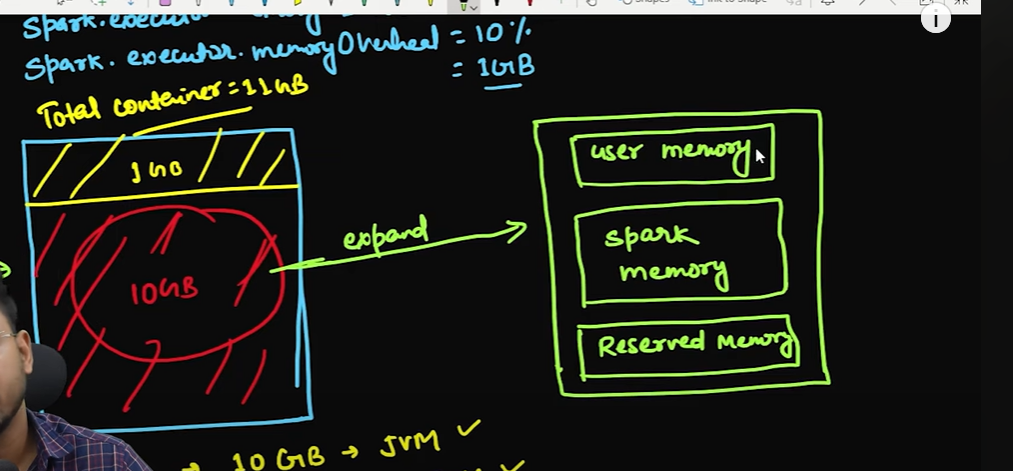 Spark.executor.
Spark. executor. memoryOverhead = 10%
= 1GB
Total container = 11GB
1GB
10GB
expand
user memory
spark
memory
Reserved Memory
10 GB → JVM ✓